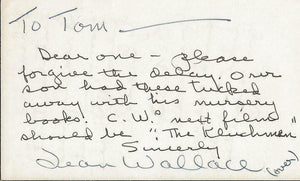 To Tom —
Dear one – please
forgive the delay. Our
son had these tucked
away with his nursery
books! C.W.'s next film
should be "The Klushmen"
Sincerly
Jean Wallace (over)